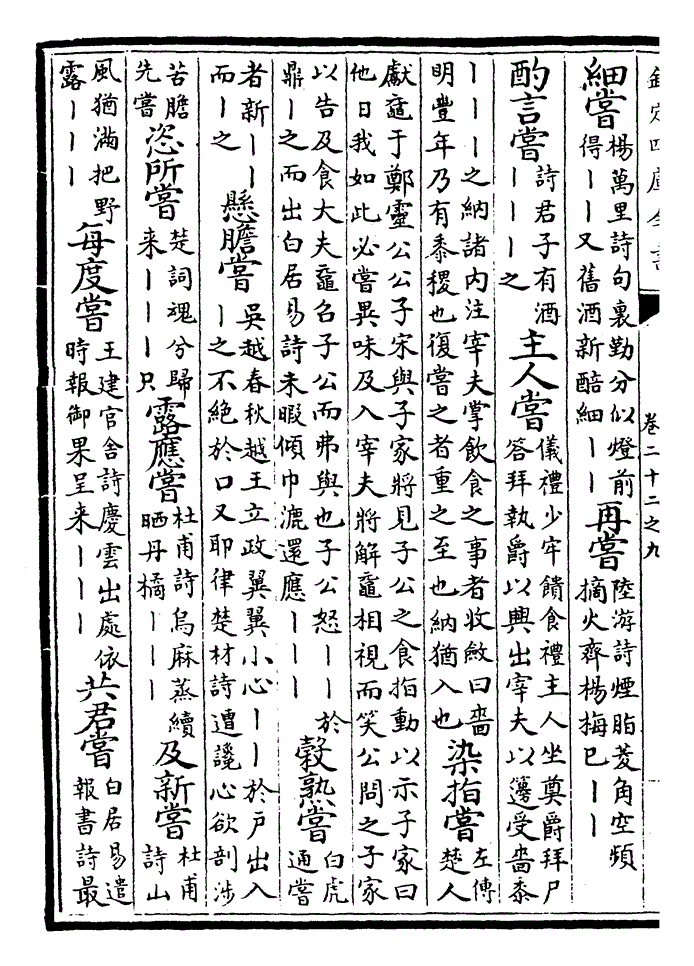 欽定四庫全書 卷二十二之九
細嘗 楊萬里詩句裏勤分似燈前得丨丨又舊酒新醅細丨丨 再嘗 陸游詩煙脂菱角空頻摘火齊楊梅已丨丨
酌言嘗 詩君子有酒丨丨丨之 主人嘗 儀禮少牢饋食禮主人坐奠爵拜尸答拜執爵以興出宰夫以籩受嗇黍
丨丨丨之納諸内注宰夫掌飲食之事者收斂曰嗇明豐年乃有黍稷也復嘗之者重之至也納猶入也 染指嘗 左傳楚人
獻黿于鄭靈公公子宋與子家將見子公之食指動以示子家曰他日我如此必嘗異味及入宰夫將解黿相視而笑公問之子家
以告及食大夫黿召子公而弗與也子公怒丨丨於鼎丨之而出白居易詩未暇傾巾漉還應丨丨丨 穀熟嘗 白虎通嘗
者新丨丨而丨之 懸膽嘗 吳越春秋越王立政翼翼小心丨丨於戶出入丨之不絶於口又耶律楚材詩遭讒心欲剖涉
苦膽先嘗 恣所嘗 楚詞魂兮歸來丨丨丨只 露應嘗 杜甫詩烏麻蒸續晒丹橘丨丨丨 及新嘗 杜甫詩山
風猶滿把野露丨丨丨 每度嘗 王建官舍詩慶雲出處依時報御果呈来丨丨丨 共君嘗 白居易遣報書詩最